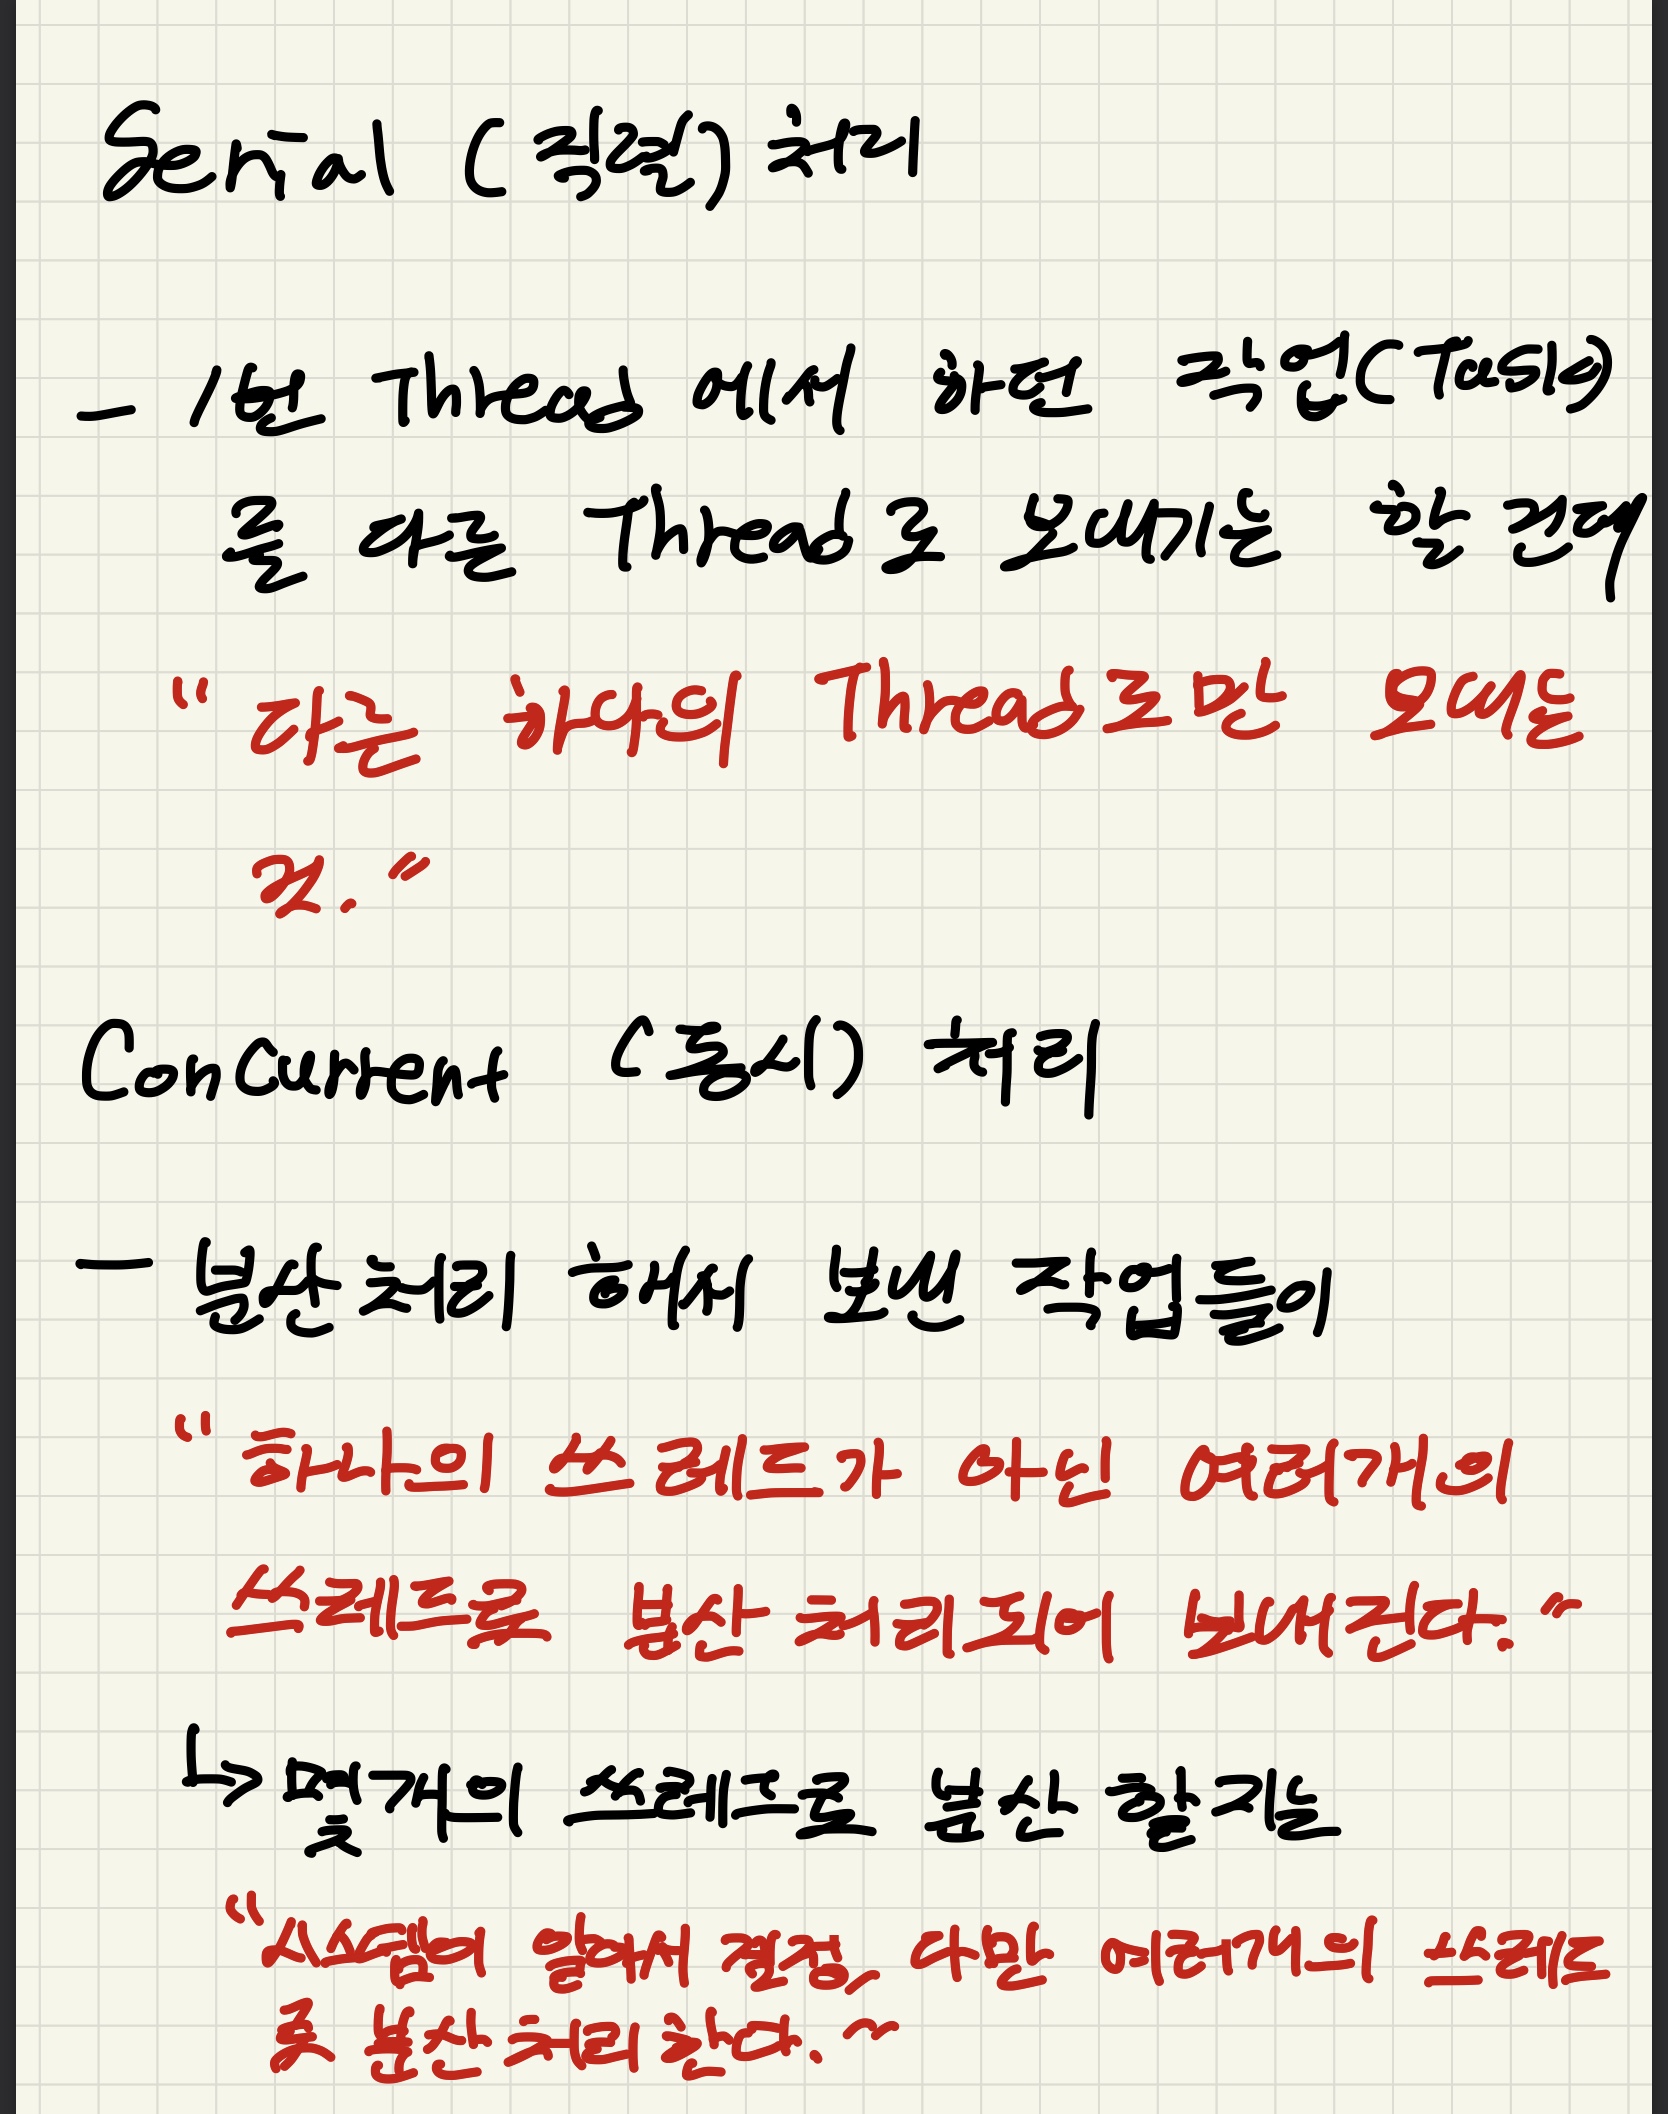 Serial (직렬) 처리
- 1번 Thread 에서 하던 작업(Task)
를 다른 Thread로 보내기는 할 건데
"다른 하나의 Thread로만 보내는
것."
Concurrent (동시) 처리
- 분산처리 해서 보낸 작업들이
"하나의 쓰레드가 아닌 여러개의
쓰레드로 분산 처리되어 보내진다."
↳ 몇개의 쓰레드로 분산 할지는
"시스템이 알아서 결정, 다만 여러개의 쓰레드
로 분산 처리 한다."